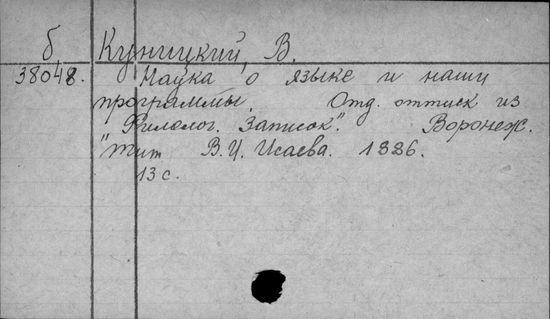 б Куницкий, В.
38048. Наука о языке и наши
программы. Отд. оттиск из
"Филолог. Записок". Воронеж.
Тип В. И. Исаева. 1886.
13 с.